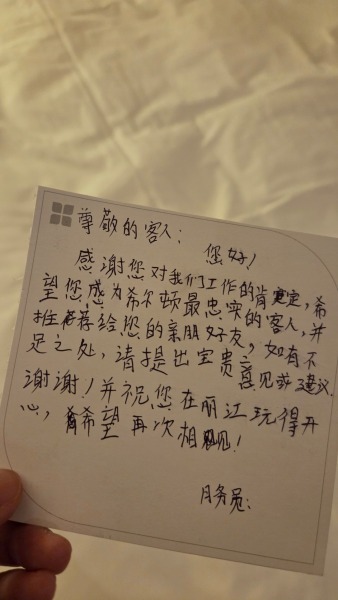 尊敬的客人：
您好！
感谢您对我们工作的肯定，希
望您成为希尔顿最忠实的客人，并
推荐给您的亲朋好友，如有不
足之处，请提出宝贵意见或建议
谢谢！并祝您在丽江玩得开
心，希望再次相见！
服务员：